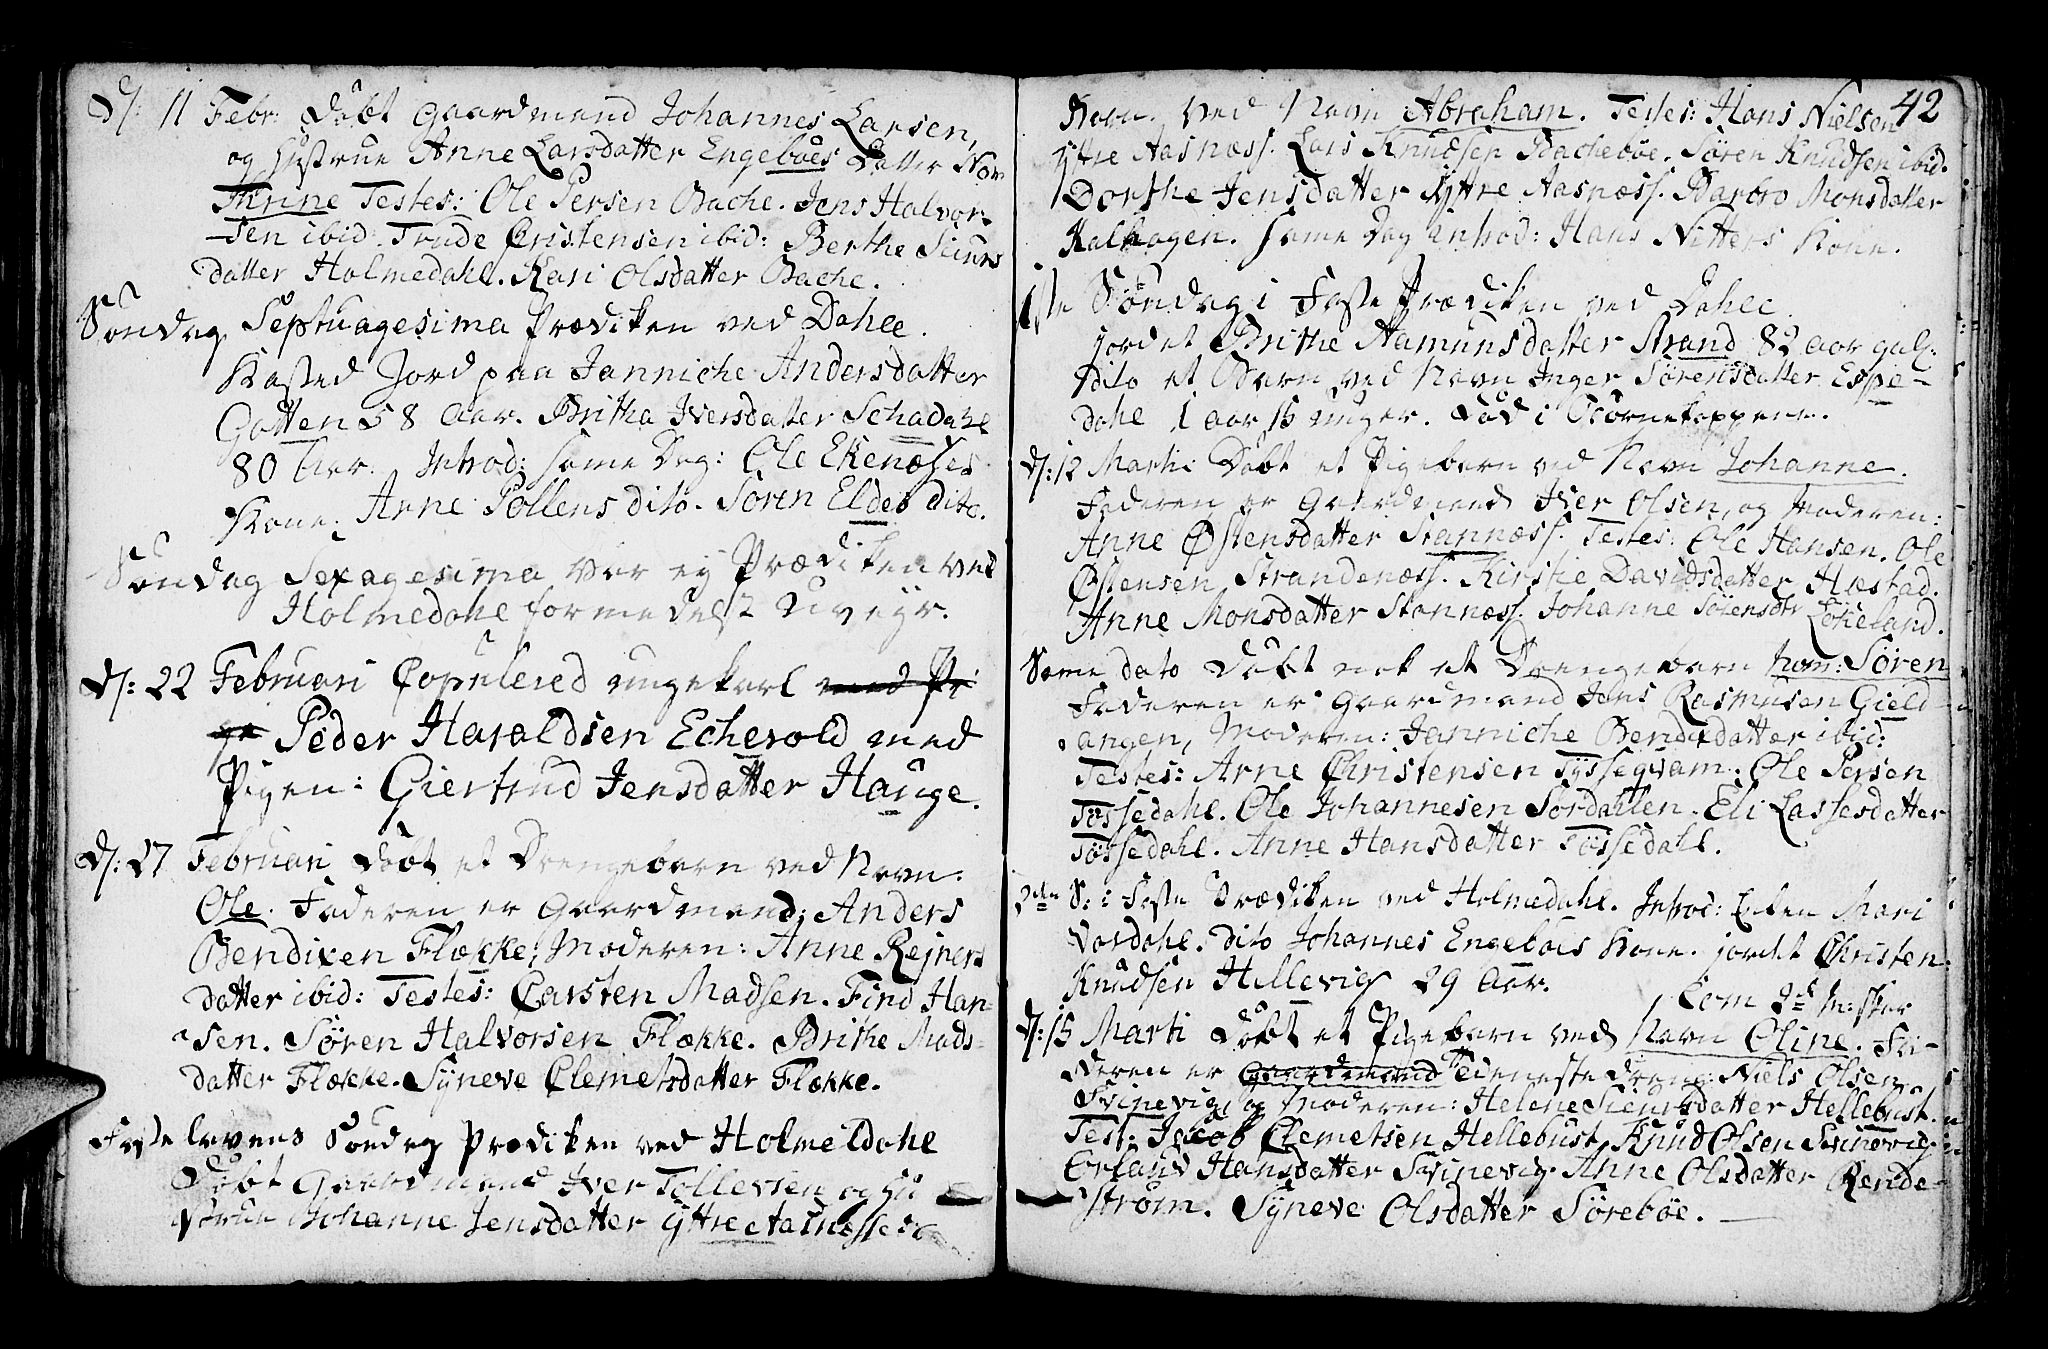 D: 11 Febr: Døbt Gaardmand Johannes Larsen,
og Hustrue Anne Larsdatter Engeboes Datter Nom
Anne Testes: Ole Persen Bache. Jens Halvor-
sen ibid. Trude Cristensen ibid: Berthe Siurs
datter Holmedahl. Kari Olsdatter Bache.
Søndag Septuagesima Prædiken ved Dahle.
Kasted Jord paa Janniche Andersdatter
Gotten 58 Aar. Britha Iversdatter Schadahl
80 Aar. Introd: same Dag: Ole Ekenæses
Kone. Anne Tollens dito. Søren Eldes dito.
Søndag Sexagesima var ey Prædiken ved
Holmedahl formedelst Uveyr.
D: 22 Februari Copulered ungekarl med Pi
ge Peder Haraldsen Echevold med
Pigen: Giertrud Jensdatter Hauge.
D: 27 Februari Døbt et Drengebarn ved Navn:
Ole. Faderen er Gaardmand: Anders
Bendixen Flække, Moderen: Anne Rejners
datter ibid: Testes: Carsten Madsen. Find Han-
sen. Søren Halvorsen Flække. Brithe Mads-
datter Flække. Syneve Clemetsdatter Flække.
Fastelavens Søndag Prædiken ved Holmedahl
Døbt Gaardmand Iver Tollevsen og Hu
strue Johanne Jensdatter Yttre
42
Barn ved Navn Abraham. Testes: Hans Nielsen
Yttre Aasnæss. Lars Knudsen Bachebøe. Søren Knudsen ibid.
Dorthe Jensdatter Yttre Aasnæss. Barbro Monsdatter
Kalhagen. Same Dag introd: Hans Nitters Kone.
1ste Søndag i Faste Prædiken ved Dahle.
jordet Brithe Aamunsdatter Strand 82 Aar gal:
dito et Barn ved Navn Inger Sørensdatter Espe-
dahl 1 aar 15 uger. Død i Børnekopperne.
D: 12 Marti Døbt et Pigebarn ved Navn Johanne.
Faderen er Gaardmand Iver Olsen, og Moderen:
Anne Østensdatter Stannæss. Testes: Ole Hansen. Ole
Østensen Strandenæss. Kirstie Davidsdatter Hæstad.
Anne Monsdatter Stannæss. Johanne Sørensdtr Løkeland.
Same dato Døbt nok et Drengebarn nom: Søren
Faderen er Gaardmand Jens Rasmusen Gield-
angen, Moderen: Janniche Bendixdatter ibid:
Testes: Arne Christensen Tysseqvam. Ole Persen
Tøssedahl. Ole Johannesen Sørdahlen. Eli Lassesdatter
Tøssedahl. Anne Hansdatter Tøssedahl.
2den S: i Faste Prædiken ved Holmedahl. Introd: Enken Mari
Vardahl. dito Johannes Engeboes Kone. jordet Christen
Knudsen Hellevig 29 Aar.
D: 15 Marti Døbt et Pigebarn ved Navn Oline. Fa-
deren er Gaardmand Tieneste dreng: Niels Olsen
Svinevig, og Moderen: Helene Siursdatter Hellebust.
Test: Jacob Clemetsen Hellebust. Knud Olsen Svinevig.
Erlaud Hansdatter Svinevig. Anne Olsdatter Rende-
strøm. Syneve Olsdatter Sørebøe.